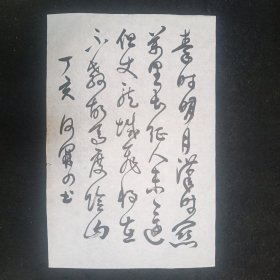 秦时明月汉时关
万里长征人未还
但使龙城飞将在
不教胡马度阴山
丁亥
书